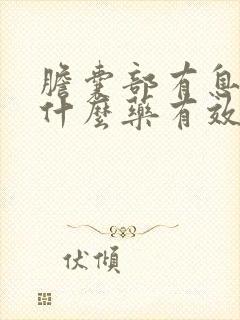 膽囊部有息
什麼藥有效
伏傾